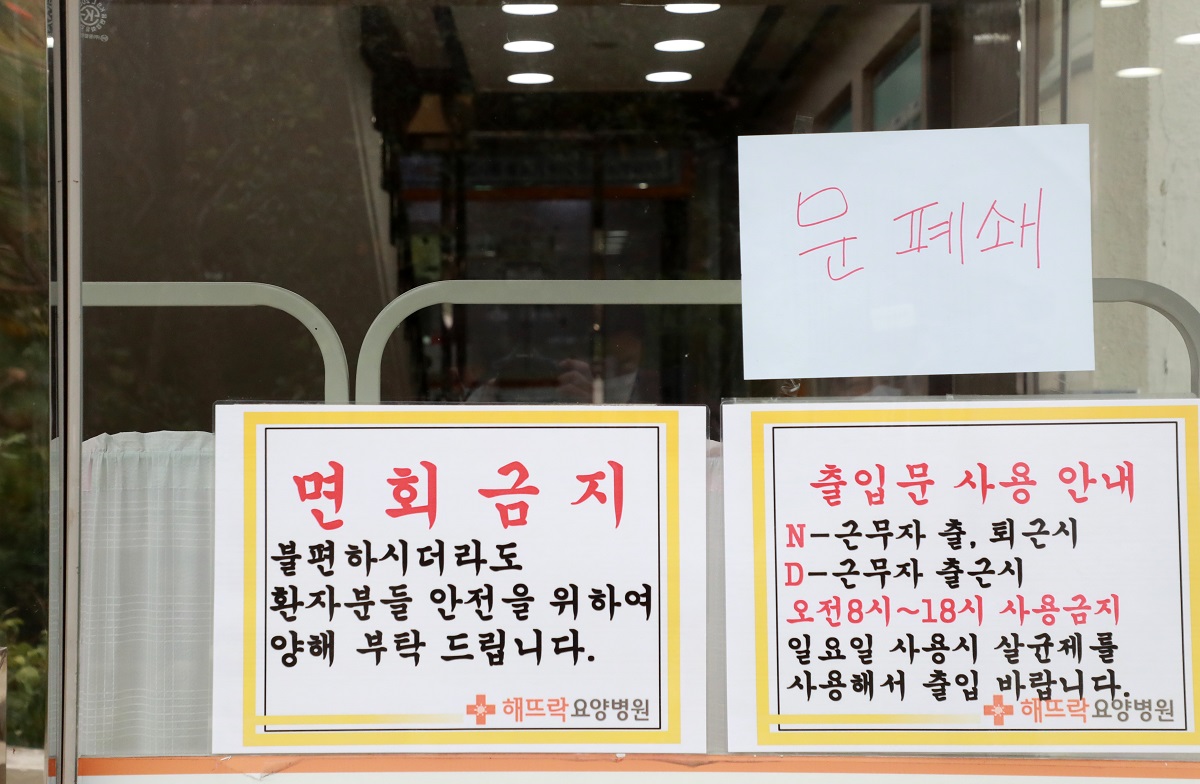 문 폐쇄
면회금지
불편하시더라도
환자분들 안전을 위하여
양해 부탁 드립니다.
해뜨락요양병원
출입문 사용 안내
N-근무자 출, 퇴근시
D-근무자 출근시
오전8시~18시 사용금지
일요일 사용시 살균제를
사용해서 출입 바랍니다.
해뜨락요양병원